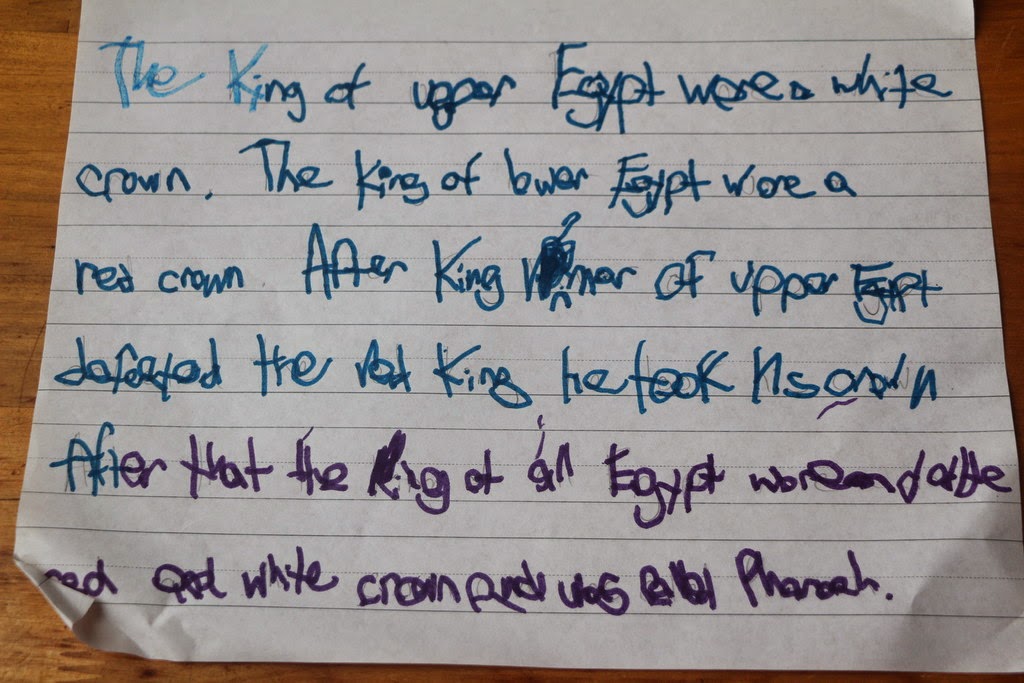 The King of upper Egypt wore a white
crown. The King of lower Egypt wore a
red crown After King of upper Egypt
defeated the red King he took his crown
After that the King of all Egypt wore
red and white crown and was called Pharoah.